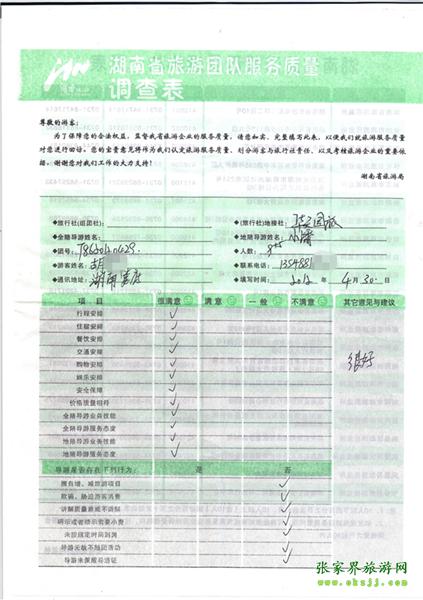 湖南省旅游团队服务质量
调查表
尊敬的游客：
为了保障您的合法权益，监督我省旅游企业的服务质量，请您如实、完整填写此表，以便我们就旅游服务质量
对您进行回访。您的宝贵意见将作为我们认定旅游服务质量、划分游客与旅行社责任、以及考核旅游企业的重要依
据。谢谢您对我们工作的大力支持！
湖南省旅游局
旅行社(组团社)： 旅行社(地接社)：
全陪导游姓名： 地陪导游姓名：小潘
团号： 人数：
游客姓名：胡 联系电话：1354881
通讯地址：湖南 填写时间：2012 年 4 月 30
项 目 很满意 满 意 一 般 不满意 其它意见与建议
行程安排
住宿安排
餐饮安排
交通安排 很好
购物安排
娱乐安排
安全保障
价格质量相符
全陪导游业务技能
全陪导游服务态度
地陪导游业务技能
地陪导游服务态度
导游是否存在下列行为： 是 否
擅自增、减旅游项目
欺骗、胁迫游客消费
讲解质量差或不讲解
明示或者暗示索要小费
未按规定时间到岗
导游无故不随团活动
导游未佩戴导游证
张家界旅游网
www.okzjj.com